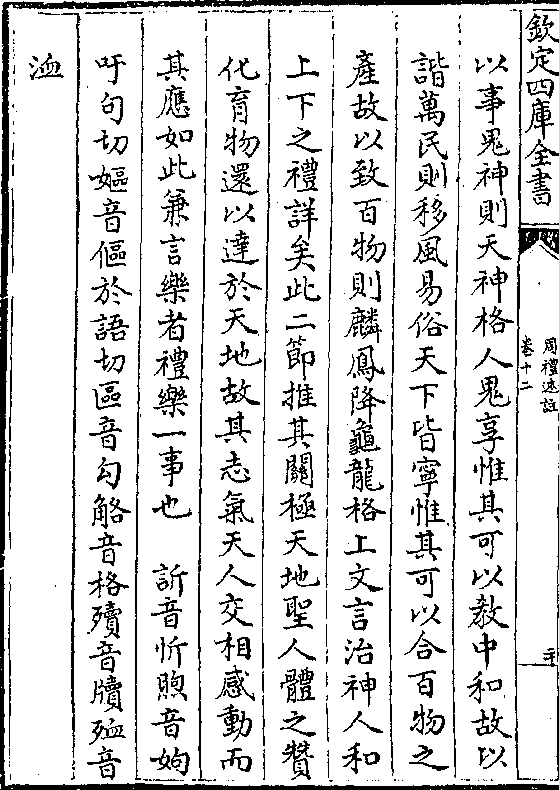 欽定四庫全書
周禮述註
卷十二
以事鬼神則天神格人鬼享惟其可以教中和故以
諧萬民則移風易俗天下皆寧惟其可以合百物之
產故以致百物則麟鳳降龜龍格上文言治神人和
上下之禮詳矣此二節推其關極天地聖人體之贊
化育物還以達於天地故其志氣天人交相感動而
其應如此兼言樂者禮樂一事也 訢音忻煦音姁
吁句切嫗音傴於語切區音勾觡音格殰音牘殈音
洫